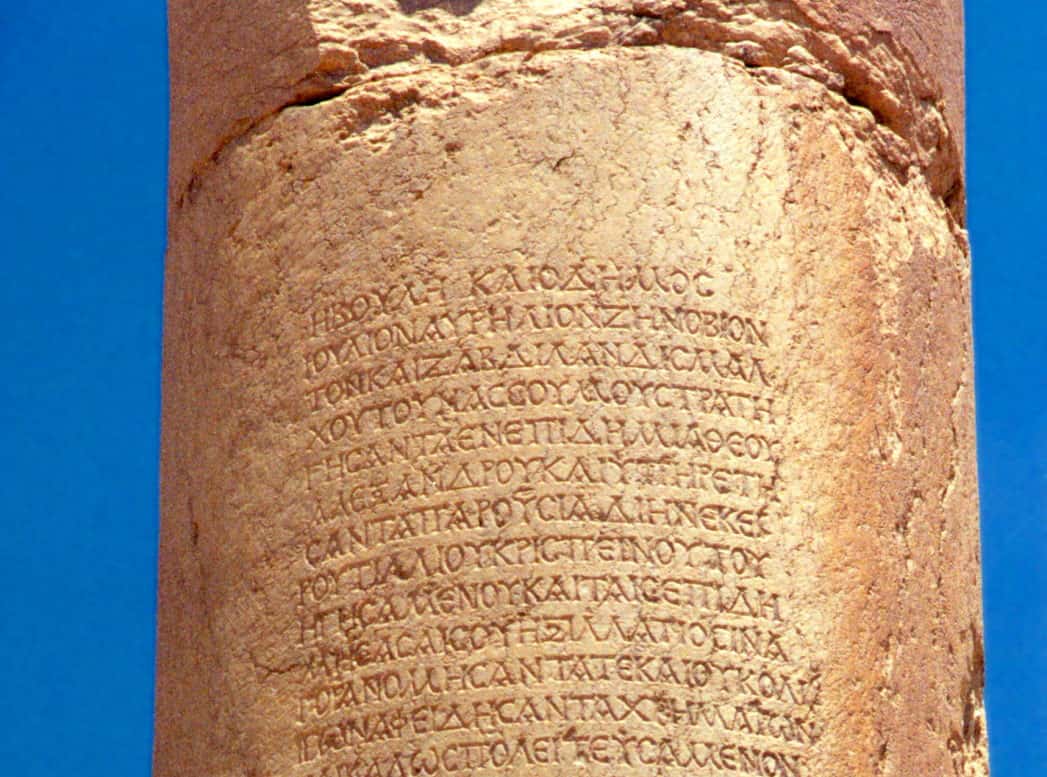 ΗΒΟΥΛΗ ΚΑΙΟΔΗΜΟC
ΙΟΥΛΙΟΝΑΥΡΗΛΙΟΝΖΗΝΟΒΙΟΝ
ΤΟΝΚΑΙΖΑΒΔΙΛΑΝΔΙCΜΑΛ
ΧΟΥΤΟΥΝΑCCΟΥΜΟΥCΤΡΑΤΗ
ΓΗCΑΝΤΑΕΝΕΠΙΔΗΜΙΑΘΕΟΥ
ΑΛΕΞΑΝΔΡΟΥΚΑΙΥΠΗΡΕΤΗ
CΑΝΤΑΠΑΡΟΥCΙΑΔΙΗΝΕΚΕΙ
ΡΟΥΤΙΛΛΙΟΥΚΡΙCΠΕΙΝΟΥΤΟΥ
ΗΓΗCΑΜΕΝΟΥΚΑΙΤΑΙCΕΠΙΔΗ
ΜΗCΑCΑΙCΟΥΗΞΙΛΛΑΤΙΟCΙΝΑ
ΓΟΡΑΝΟΜΗCΑΝΤΑΤΕΚΑΙΟΥΚΟΛΙ
ΓΩΝΑΦΕΙΔΗCΑΝΤΑΧΡΗΜΑΤΩΝ
ΚΑΛΩCΠΟΛΕΙΤΕΥCΑΜΕΝΟΝ